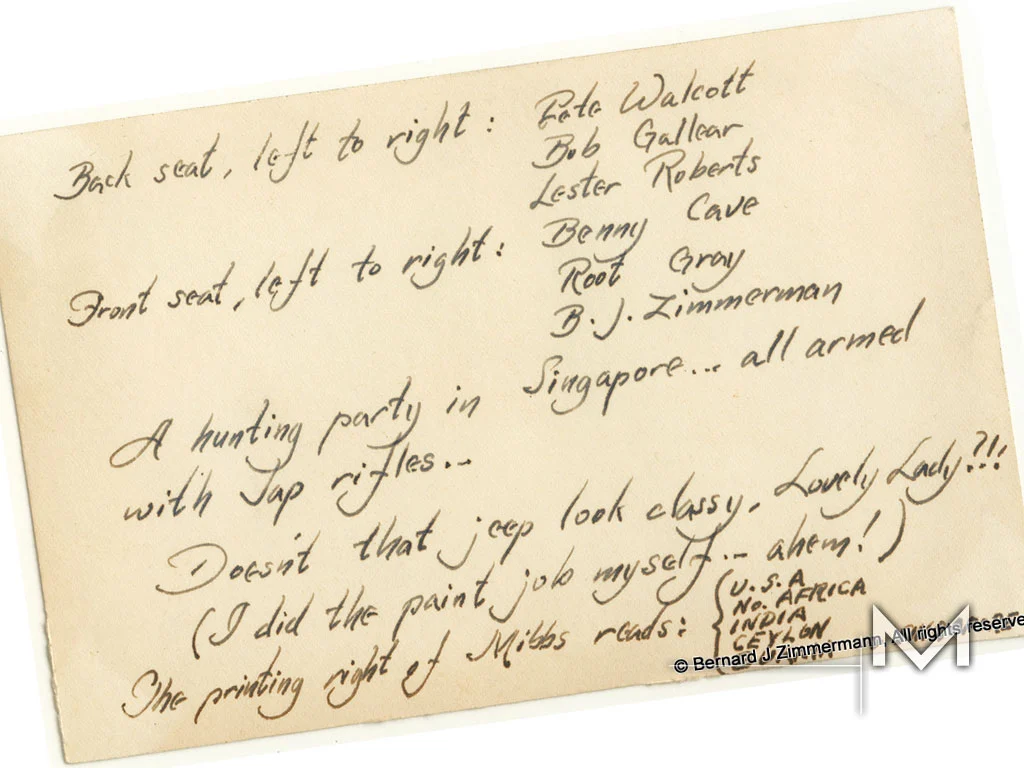 Back seat, left to right: Pete Walcott
Bob Gallear
Lester Roberts
Front seat, left to right: Benny Cave
Root Gray
B. J. Zimmerman
A hunting party in Singapore... all armed
with Jap rifles...
Doesn't that jeep look classy, Lovely Lady?!!
(I did the paint job myself... ahem!)
The printing right of Mibbs reads: { U.S.A
No. AFRICA
INDIA
CEYLON
© Bernard J Zimmermann, All rights reserve
M